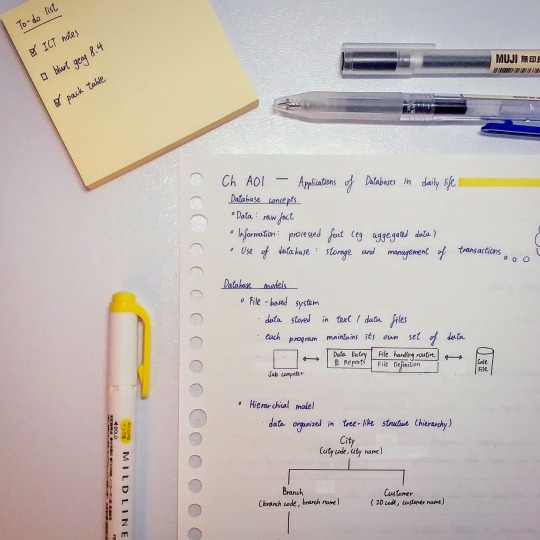 To-do list
ICT notes
blurt geog 8.4
pack table
MUJI 無印良
Ch A01 — Applications of Databases in daily life
Database concepts
Data: raw fact
Information: processed fact (eg aggregated data)
Use of database: storage and management of transactions
Database models
File-based system
data stored in text / data files
each program maintains its own set of data
Data Entry & Reports
File handling routine
File Definition
File
Hierarchical model
data organized in tree-like structure (hierarchy)
City
(city code, city name)
Branch
(branch code, branch name)
Customer
(ID code, customer name)
MILDLINE